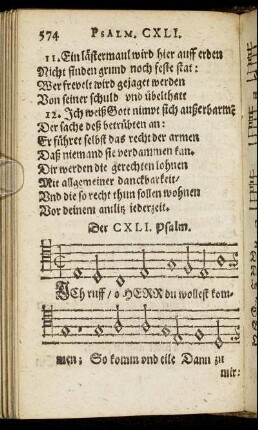 574 PSALM. CXLI.
11. Ein lästermaul wird hier auff erden
Nicht finden grund noch feste stat:
Wer frevelt wird gejaget werden
Von seiner schuld vnd übelthatt
12. Ich weiß Gott nimpt sich außerharmē
Der sache deß betrübten an:
Er führet selbst das recht der armen
Daß niemand sie verdammen kan.
Dir werden die gerechten lohnen
Mit allgemeiner danckbarkeit/
Vnd die so recht thun sollen wohnen
Vor deinem antlitz jederzeit.
Der CXLI. Psalm.
ICh ruff/ o HERR du wollest kom-
men; So komm vnd eile Dann zu
mir: